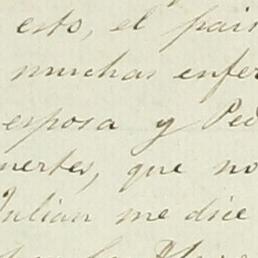 esto, el pais
muchas enfer
esposa y Ped
uertes, que no
Julian me dice